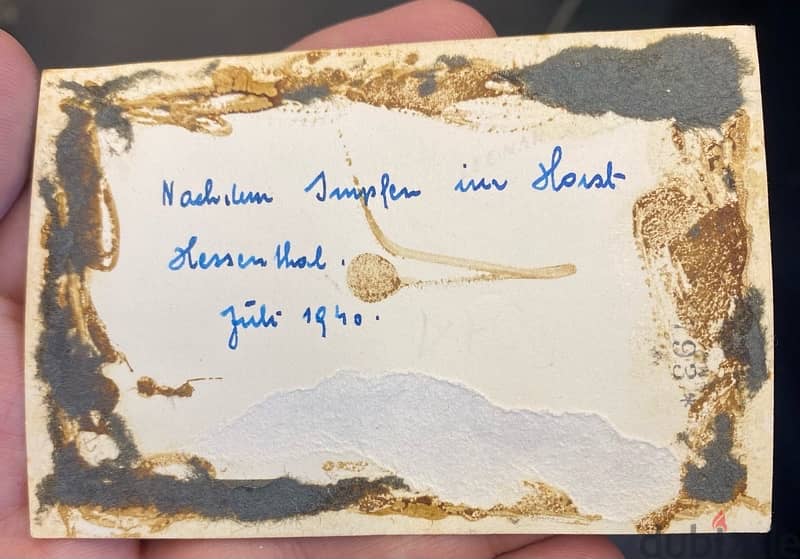 Nach dem Impfen im Horst
Hessenthal.
Juli 1940.
193 *